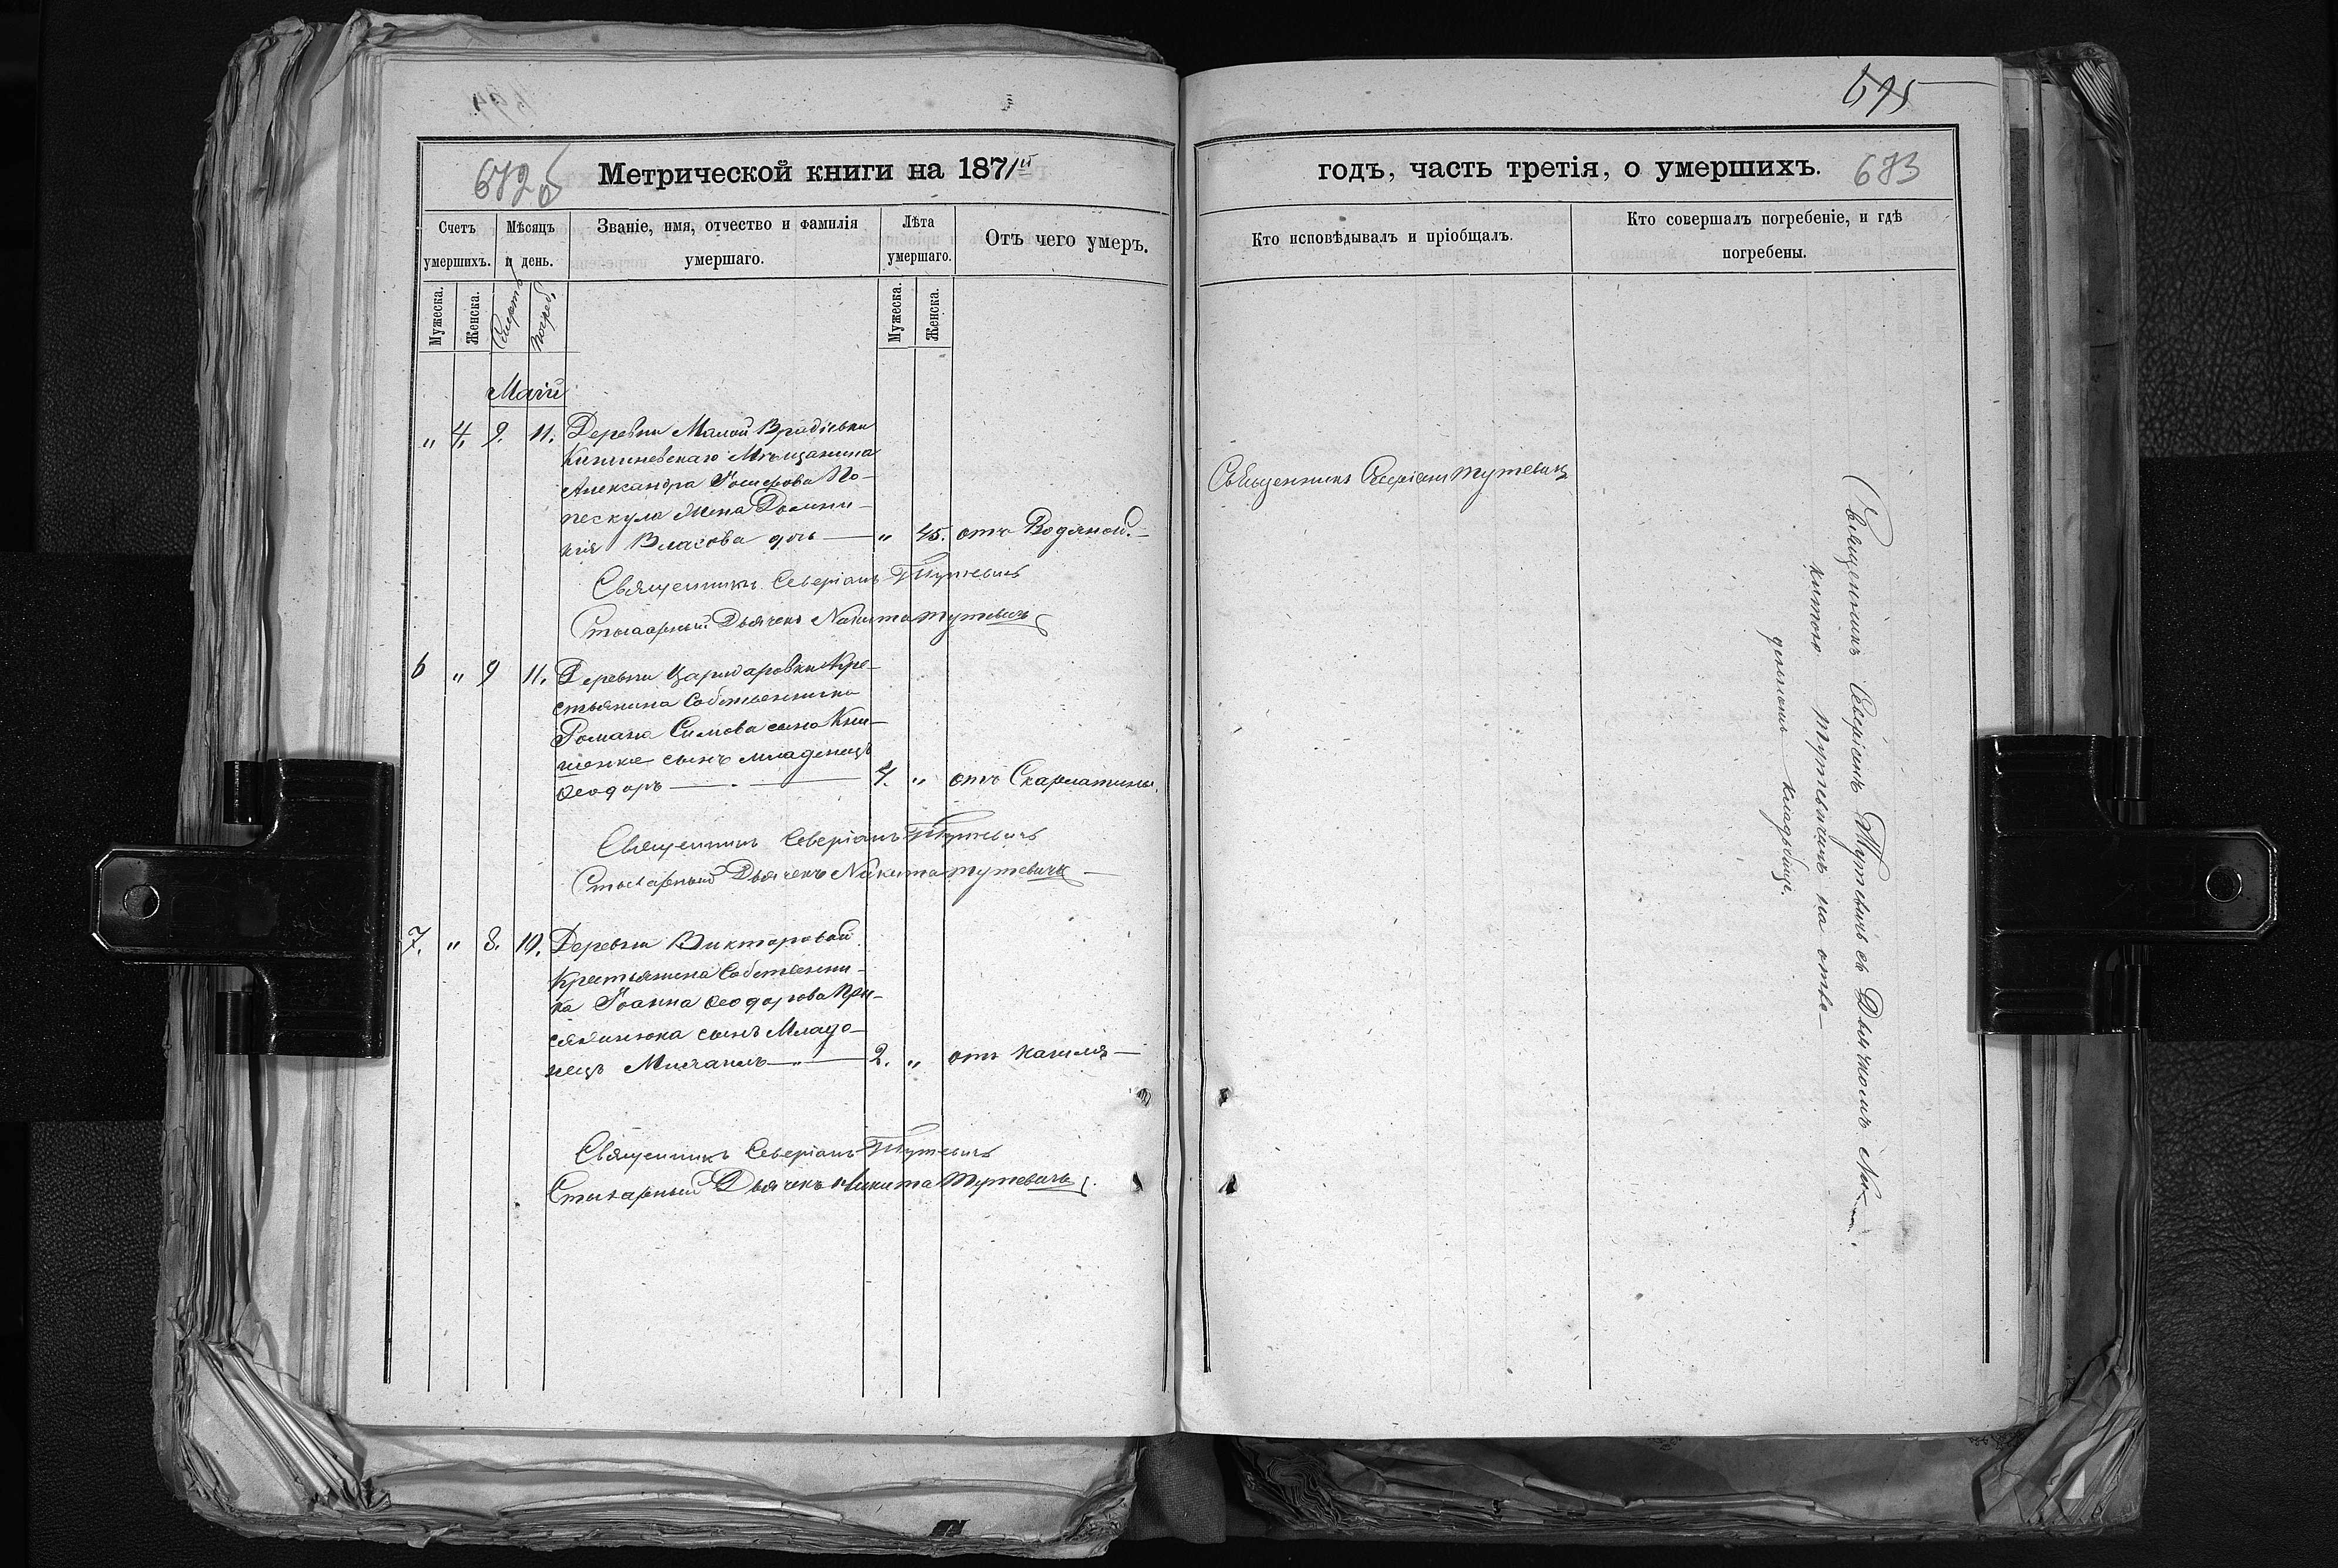 675
672 об
Метрической книги на 1871й
годъ, часть третія, о умершихъ.
673
Счетъ умершихъ.
Мѣсяцъ и день.
Званіе, имя, отчество и фамилія умершаго.
Лѣта умершаго.
Отъ чего умеръ.
Кто исповѣдывалъ и пріобщалъ.
Кто совершалъ погребеніе, и гдѣ погребены.
Мужеска.
Женска.
Смерть
погреб.
Мужеска.
Женска.
Маій
" 4. 9. 11. Деревни Малой Врадіевки
Кишиневскаго Мѣщанина
Александра
пескула Жена Домни-
кія Власова дочь — " 45. отъ Водяной. —
Священникъ Северіанъ Тутевичъ
Стихарный Дьячекъ Никита Тутевичъ
Священникъ Северіанъ Тутевичъ
6 " 9 11. Деревни Царидаровки Кре-
стьянина Собственника
Романа сына Кни-
шенке сынъ младенецъ
Ѳеодоръ — 4. " отъ Скарлатины.
Священникъ Северіанъ Тутевичъ
Стихарный Дьячекъ Никита Тутевичъ —
7. " 8. 10. Деревни Викторовой
Крестьянина Собственни-
ка Іоанна Ѳеодорова
сынъ Младе-
нецъ Михаилъ — 2. " отъ Кашля —
Священникъ Северіанъ Тутевичъ
Стихарный Дьячекъ Никита Тутевичъ.
Священникъ Северіанъ Тутевичъ съ Дьячкомъ Ни-
китою Тутевичемъ на отве-
денномъ кладбище.